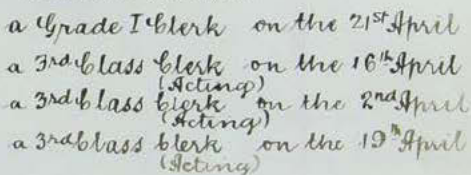 a Grade I Clerk on the 21st April
a 3rd Class Clerk on the 16th April
(Acting)
a 3rd Class Clerk on the 2nd April
(Acting)
a 3rd Class Clerk on the 19th April
(Acting)